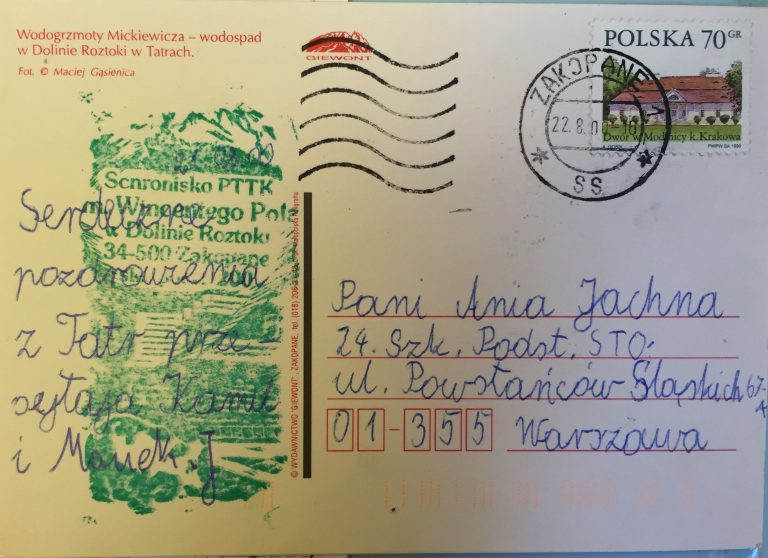 Wodogrzmoty Mickiewicza – wodospad
w Dolinie Roztoki w Tatrach.
Fot. © Maciej Gąsienica
GIEWONT
ZAKOPANE 1
22.8.0 -18
SS
POLSKA 70 GR
Dwór w Modlnicy k. Krakowa
PWPW SA 1999
Schronisko PTTK
im. Wincentego Pola
Dolinie Roztoki
34-500 Zakopane
Serdeczne
pozdrowienia
z Tatr prze-
syłają Kamil
i Marek J
© WYDAWNICTWO "GIEWONT", ZAKOPANE, tel. (018)
Pani Ania Jachna
24. Szk. Podst. STO.
ul. Powstańców Śląskich 67
A
01-355 Warszawa